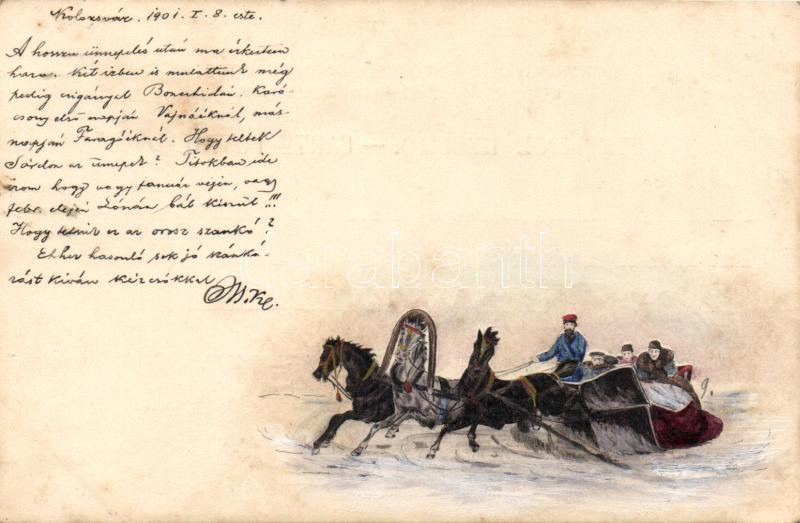 Kolozsvár. 1901. I. 8. este.
A hosszu ünneplés után ma érkeztem
haza. Két izben is mulattunk még
pedig czigánynyal Bonczhidán. Kará-
csony első napján Vajnáéknál, más-
napján Faragóéknál. Hogy teltek
Sárdon az ünnepek? Titokban ide
irom hogy vagy január végén, vagy
febr. elején Zónán bál készül!!!
Hogy tetszik ez az orosz szánkó?
Ehhez hasonló sok jó szánká-
zást kiván kézcsókkal
Mike.
darabanth
g.